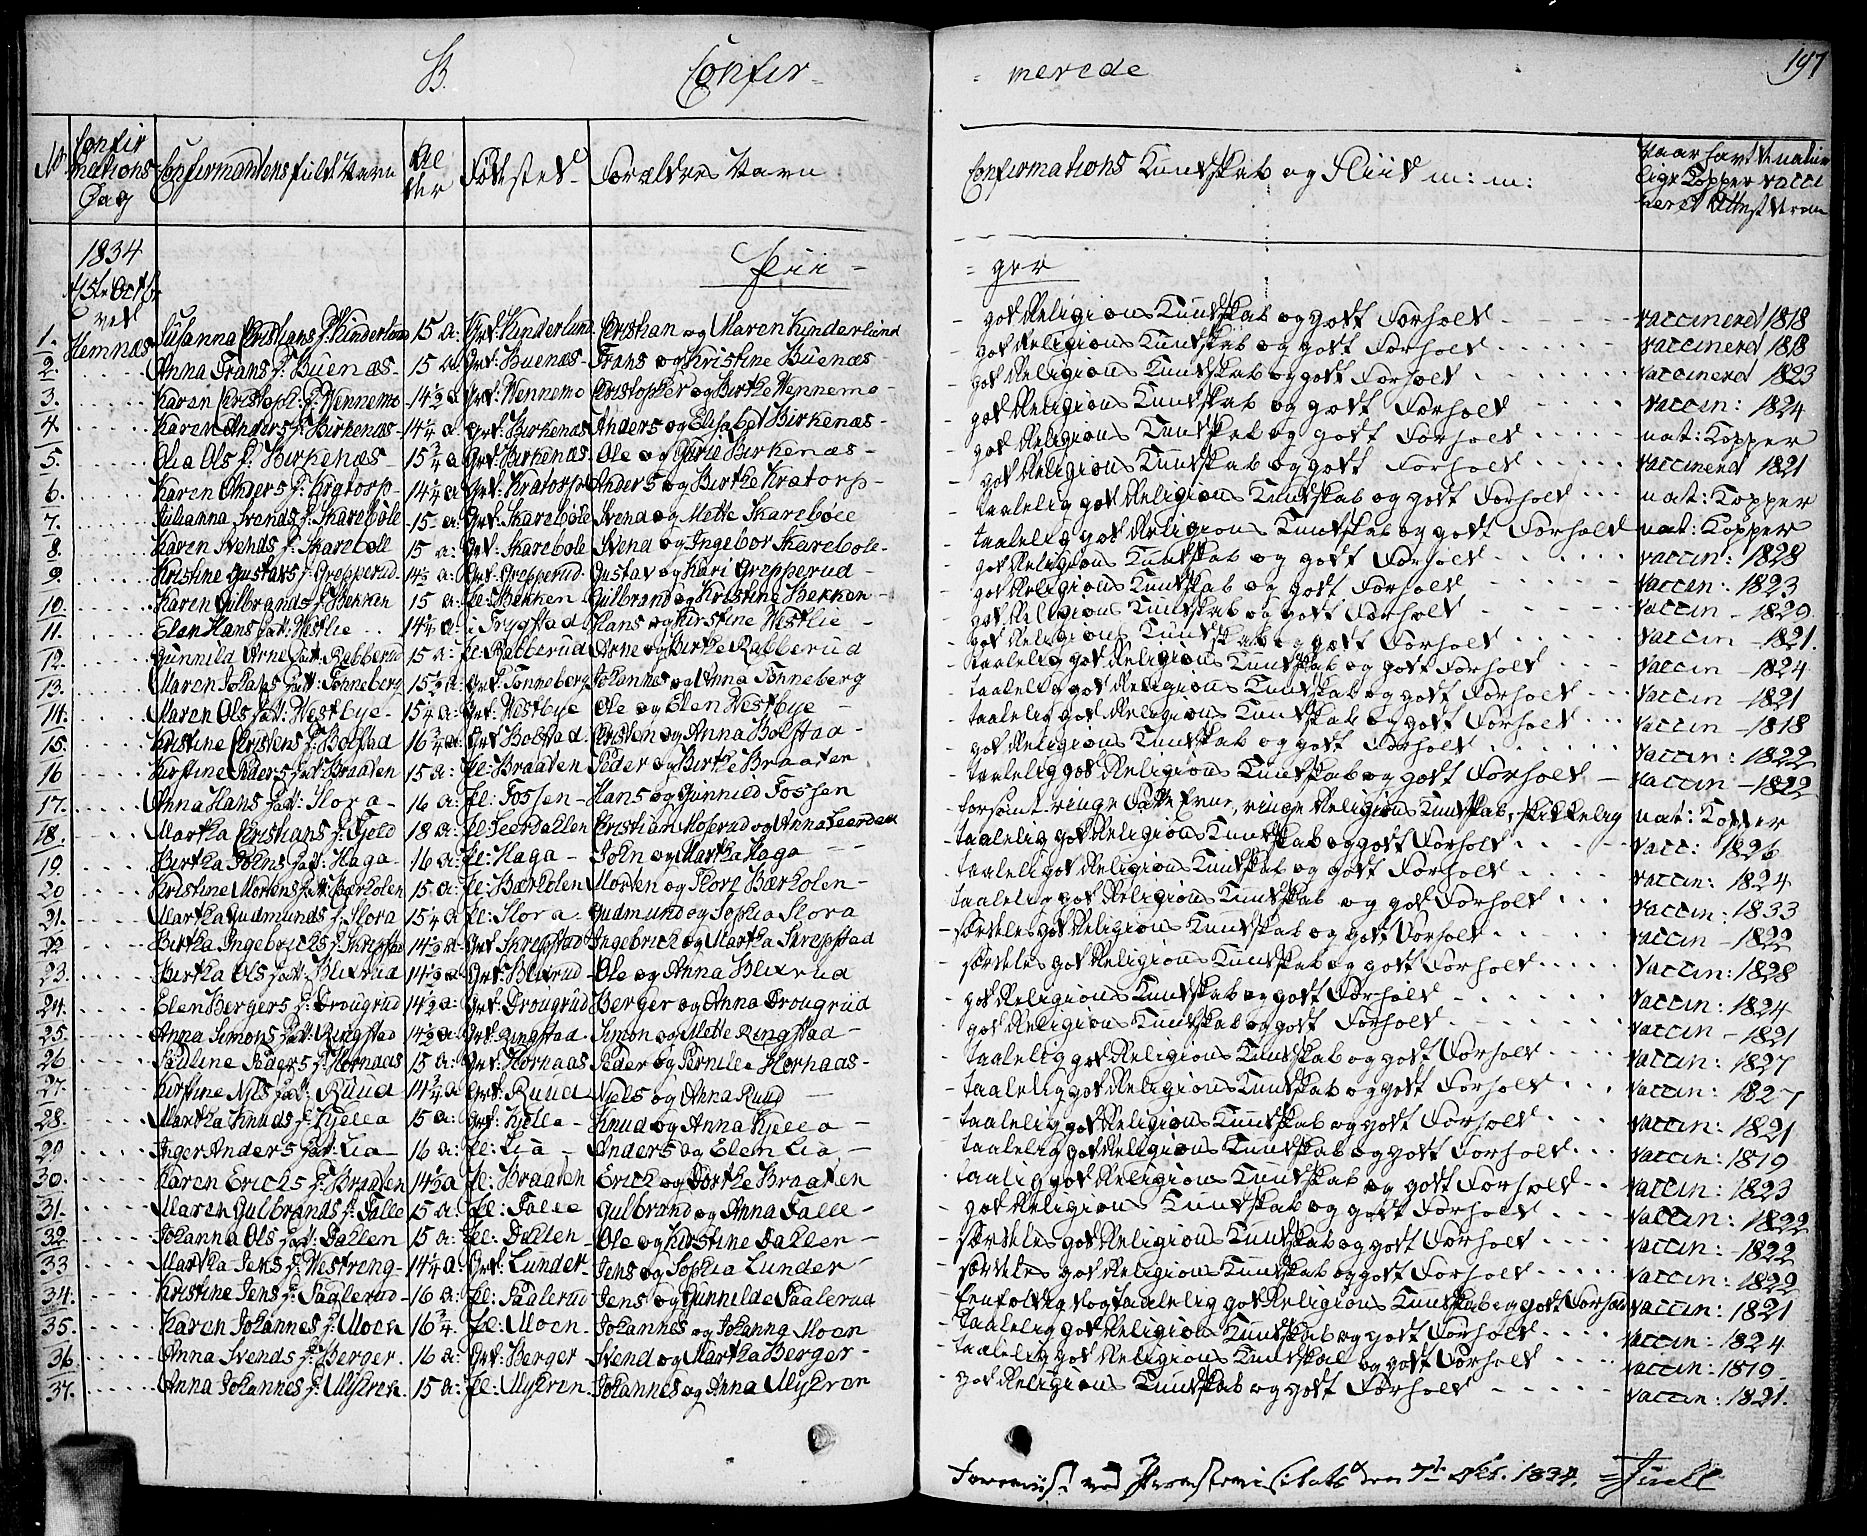 B. Confir-
= merede
197
No
Confirmations Dag
Confirmantens fulde Navn
Alder
Fødested
Forældres Navn
Confirmations Kundskab og Fliid m: m:
1834
15de Octbr
ved
Hemnæs
Pii =
= ger
1. Susanna Christians d: Kinderlund 15 a: Grd: Kinderlund Christian og Maren Kinderlund - god Religions Kundskab og godt Forhold - vaccinered 1818
2. Anna Frans d: Buenæs - 15 a: Grd: Buenæs - Frans og Kristine Buenæs - god Religions Kundskab og godt Forhold - vaccinered 1818
3. Karen Christoph: d: Wennemo - 14½ a Grd: Wennemo Christopher og Birthe Wennemo - god Religions Kundskab og godt Forhold - vaccinered 1823
4. Karen Anders d: Birkenæs - 14¼ a Grd: Birkenæs Anders og Elisabet Birkenæs - god Religions Kundskab og godt Forhold - vaccin: 1824
5. Olia Ols d: Birkenæs - 15¾ a Grd: Birkenæs Ole og Gurie Birkenæs - god Religions Kundskab og godt Forhold - nat: Kopper
6. Karen Anders d: Kratorp - 14¼ a: Grd: Kratorp Anders og Birthe Kratorp - god Religions Kundskab og godt Forhold - vaccinered 1821
7. Julianna Svends d: Skarebøle - 15 a: Grd: Skarebøle Svend og Mette Skarebøle - taalelig god Religions Kundskab og godt Forhold - nat: Kopper
8. Karen Svends d: Skarebøll 15 a: Grd: Skarebøle Svend og Ingebor Skarebøle - taalelig god Religions Kundskab og godt Forhold nat: Kopper
9. Kristine Gustavs d: Grepperud - 14½ a: Grd: Grepperud Gustav og Kari Grepperud - god Religions Kundskab og godt Forhold - vaccin: 1828
10. Karen Gulbrands d: Bekken 15 a: pl: Bekken Gulbrand og Kristine Bekken - god Religions Kundskab og godt Forhold - vaccin: 1823
11. Elen Hans dat: Westlie 14¼ a: i Trygstad Hans og Kirstine Westlie - god Religions Kundskab og godt Forhold - vaccin - 1829
12. Gunnild Arne dat: Rabberud 15 a: pl: Rabberud Arne og Birthe Rabberud - god Religions Kundskab og godt Forhold - vaccin - 1821.
13. Maren Johans dat: Tønneberg 15½ a: Grd: Tønneberg Johannes og Anna Tønneberg - taalelig god Religions Kundskab og godt Forhold - vaccin - 1824
14. Maren Ols dat: Westbye - 15¼ a: Grd: Westbye Ole og Elen Westbye - taalelig god Religions Kundskab og godt Forhold - vaccin - 1821
15. Kristine Christens d: Bolstad 16¾ a: Grd: Bolstad Christen og Anna Bolstad - taalelig god Religions Kundskab og godt Forhold - vaccin - 1818
16 Kirstine Peders dat: Braaten 15 a: pl: Braaten Peder og Birthe Braaten - god Religions Kundskab og godt Forhold - vaccin: 1822
17. Anna Hans dat: Slora - 16 a: pl: Fossen - Hans og Gunnild Fossen - taalelig god Religions Kundskab og godt Forhold - vaccin - 1822
18. Martha Christians d: Fjeld 18 a: pl: Leerdallen Christian Moserud og Anna Leerdal forsømt ringe Fatte Evne, ringe Religions Kundskab, skikkelig nat: Kopper
19. Birtha Johns dat: Haga - 16 a: pl: Haga - John og Martha Haga - taalelig god Religions Kundskab og godt Forhold - vacc: 1826
20 Kristine Mortens dat: Bærholen 15 a: pl: Bærholen Morten og Dort Bærholen - taalelig god Religions Kundskab og godt Forhold - vaccin: 1824
21. Martha Gudmunds d: Slora 15¼ a pl: Slora Gudmund og Sophia Slora taalelig god Religions Kundskab og god Forhold - vaccin: 1833
22 Birtha Ingebrichs d: Skrepstad 14½ a: Grd: Skrepstad Ingebrich og Martha Skrepstad - særdeles god Religions Kundskab og godt Forhold - vaccin - 1822
23. Birtha Ols dat: Blixrud 14½ a Grd: Blixrud - Ole og Anna Blixrud - særdeles god Religions Kundskab og godt Forhold - vaccin: 1828
24. Elen Bergers d: Drougrud 14½ a: Grd: Drougrud Berger og Anna Drougrud - god Religions Kundskab og godt Forhold - vaccin: 1824
25. Anna Simons dat: Ringstad 14½ a: Grd: Ringstad Simon og Mette Ringstad - god Religions Kundskab og godt Forhold - vaccin - 1821
26 Pauline Peders d: Hornaas 15 a: Grd: Hornaas Peder og Pernille Hornaas - taalelig god Religions Kundskab og godt Forhold - vaccin: 1827
27. Kirstine Nils dat: Ruud 14½ a Grd: Ruud Niels og Anna Ruud - taalelig god Religions Kundskab og godt Forhold - vaccin: 1827
28. Martha Knuds d: Kjella 15 a: Grd: Kjella - Knud og Anna Kjella - taalelig god Religions Kundskab og godt Forhold - vaccin: 1821
29 Inger Anders dat: Lia - 16 a: pl: Lia - Anders og Elen Lia - taalelig god Religions Kundskab og godt Forhold - vaccin: 1819
30. Karen Erichs d: Braaten 14½ a pl: Braaten Erich og Dorthe Braaten taalig god Religions Kundskab og godt Forhold - vaccin: 1823
31. Maren Gulbrands d: Falle 15 a: pl: Falle Gulbrand og Anna Falle - god Religions Kundskab og godt Forhold - vaccin: 1822
32 Johanna Ols dat: Dahlen 15 a: pl: Dahlen - Ole og Kirstine Dahlen - særdeles god Religions Kundskab og godt Forhold - vaccin: 1822
33 Martha Jens d: Westreng - 14¼ a: Grd: Lunder - Jens og Sophia Lunder - særdeles god Religions Kundskab og godt Forhold - vaccin: 1822
34. Kristine Jens d: Saglerud - 16 a: pl: Paalerud - Jens og Gunnilde Paalerud Eenfoldig dog taalelig god Religions Kundskab og godt Forhold vaccin: 1821
35. Karen Johannes d: Moen 16¾ pl: Moen - Johannes og Johanna Moen - taalelig god Religions Kundskab og godt Forhold - vaccin: 1824
36 Anna Svends d: Berger. 16 a: Grd: Berger - Svend og Martha Berger - taalelig god Religions Kundskab og godt Forhold - vaccin: 1819
37. Anna Johannes d: Myhren 15 a: pl: Myhren - Johannes og Anna Myhren - god Religions Kundskab og godt Forhold - vaccin: 1821.
Foreviist ved den 7de 1834. Juell